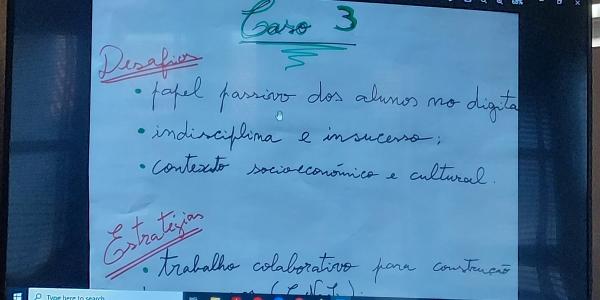 Caso 3
Desafios
• papel passivo dos alunos no digita
• indisciplina e insucesso;
• contexto socioeconómico e cultural.
Estratégias
• trabalho colaborativo para construção
Type here to search